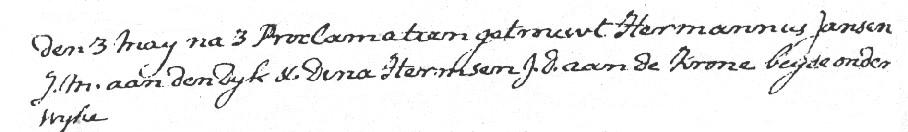 den 3 May na 3 Proclamatien getrouwt Hermannus Jansen
J.M. aan den Dyk & Dina Hermsen J.D. aan de Krone beyde onder
Wyhe